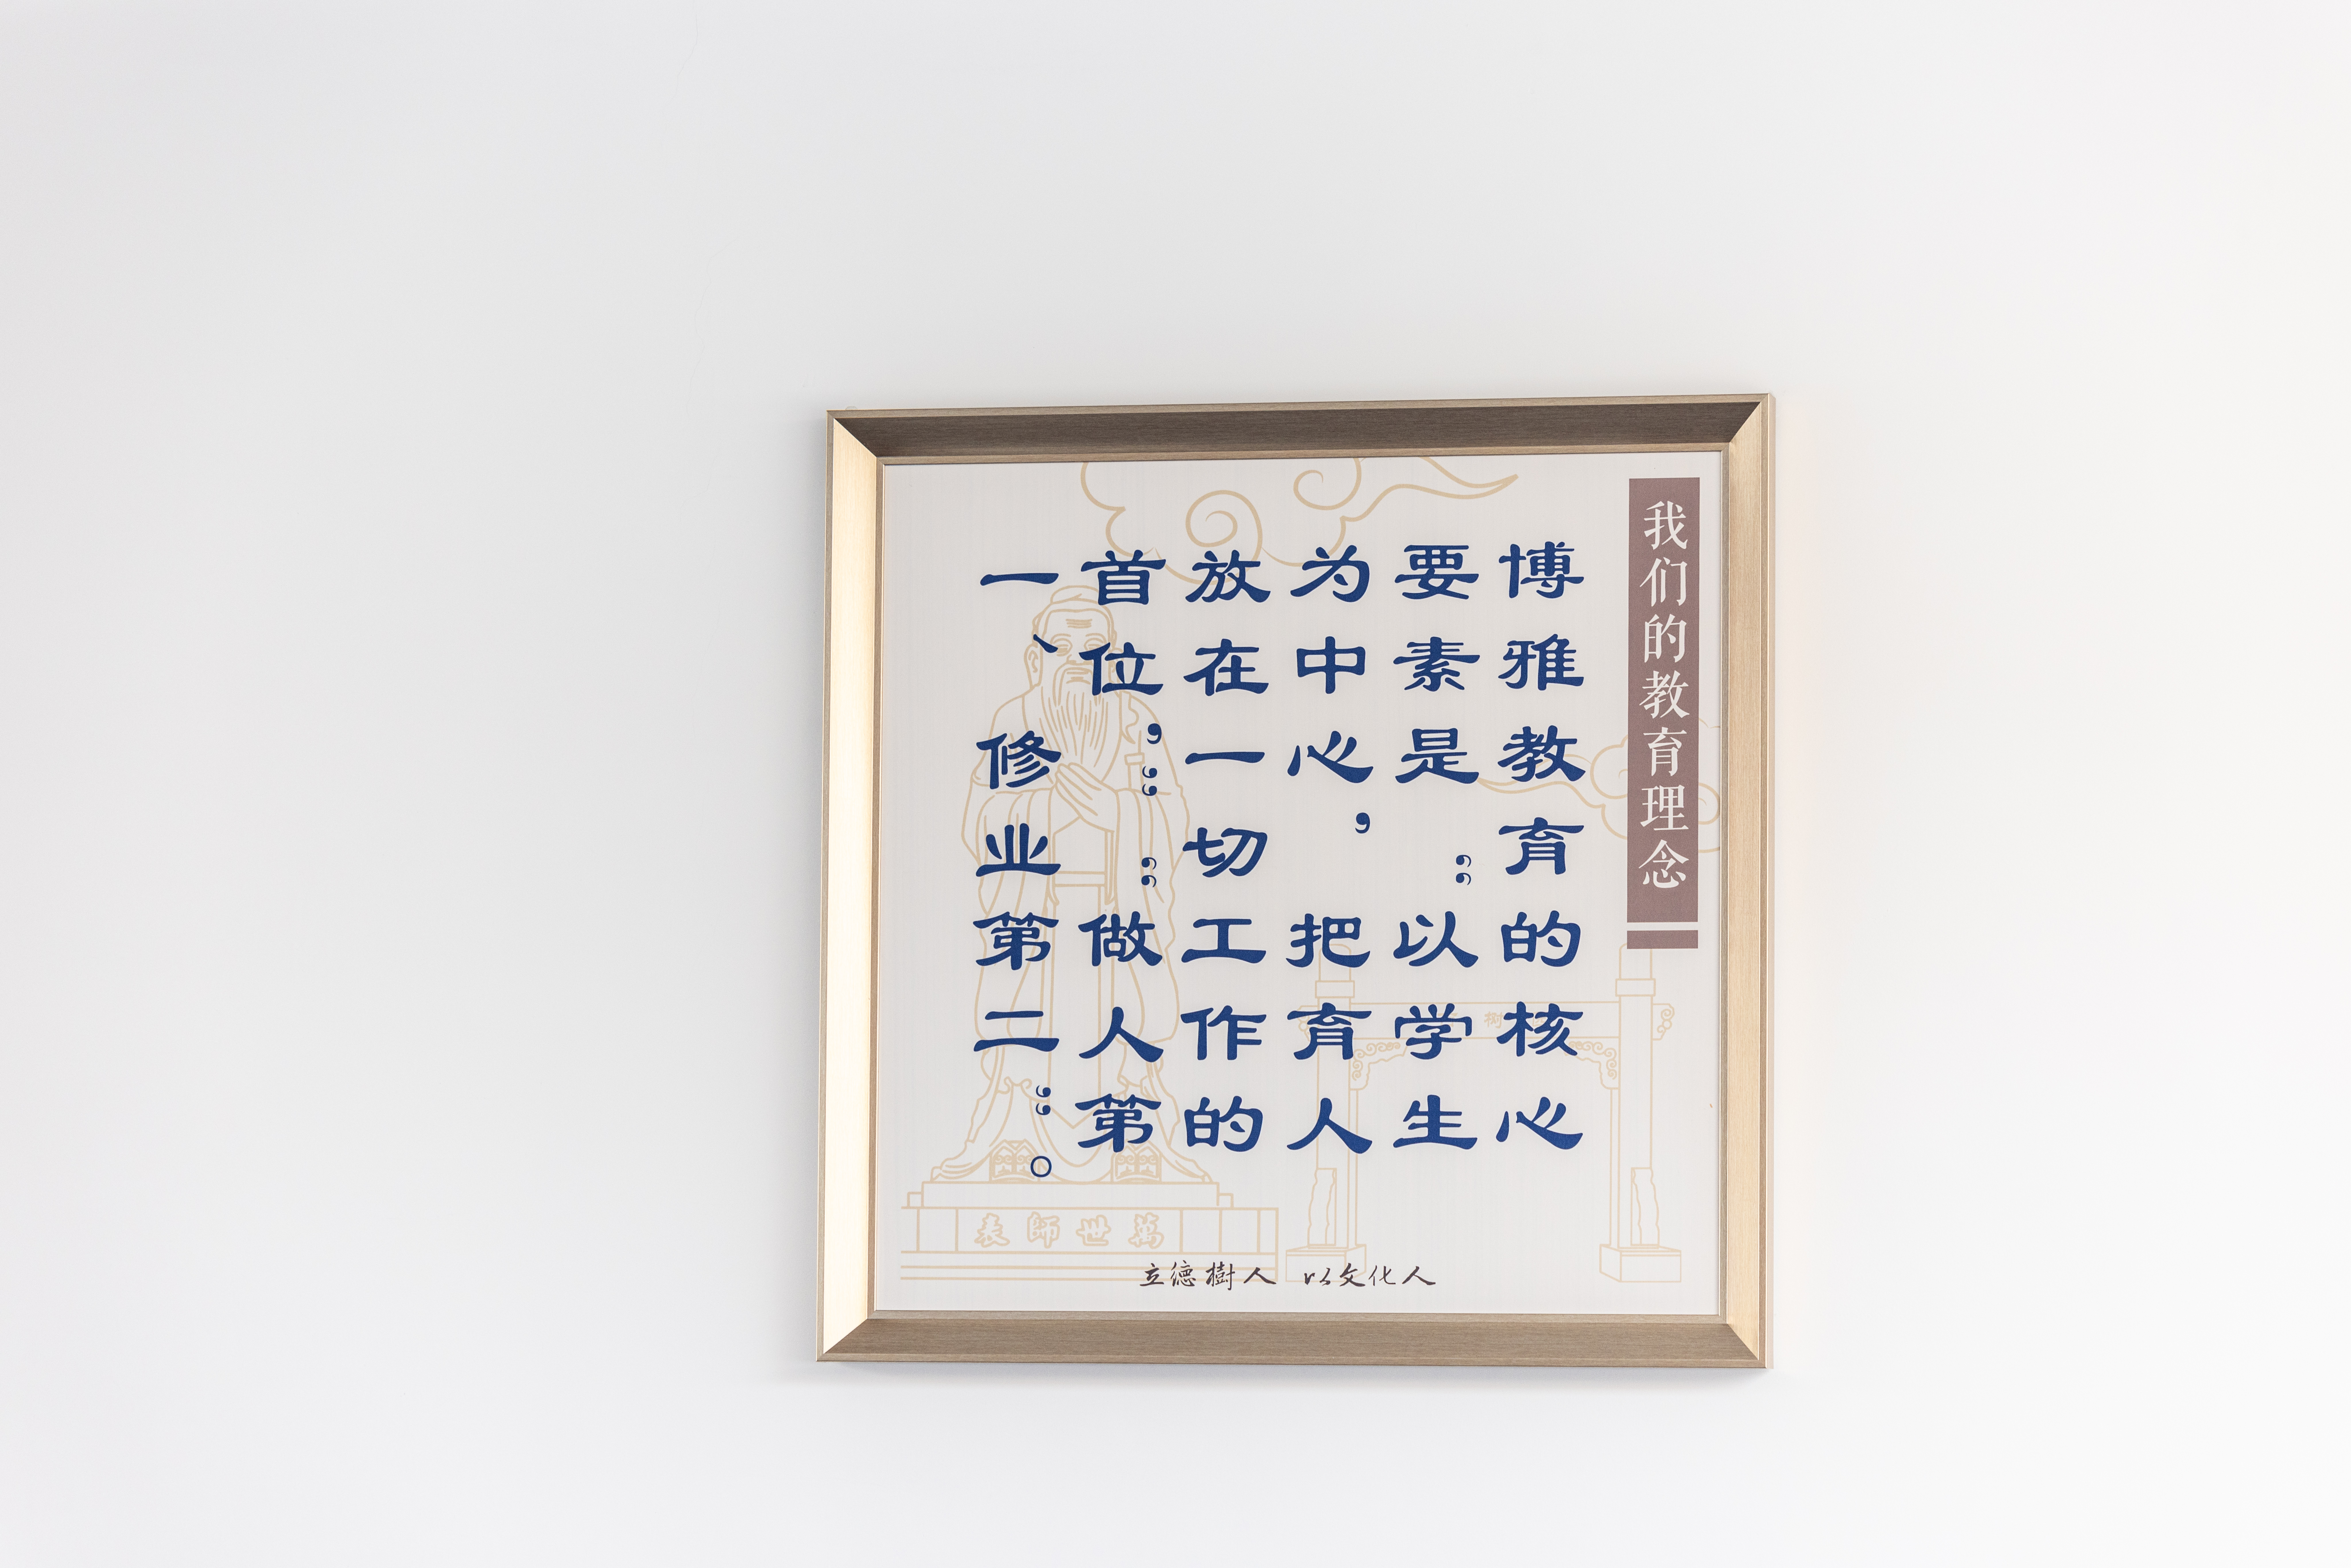 我们的教育理念
博雅教育的核心
要素是“以学生
为中心，把育人
放在一切工作的
首位，”“做人第
一、修业第二”。
树
萬世師表
立德樹人 以文化人